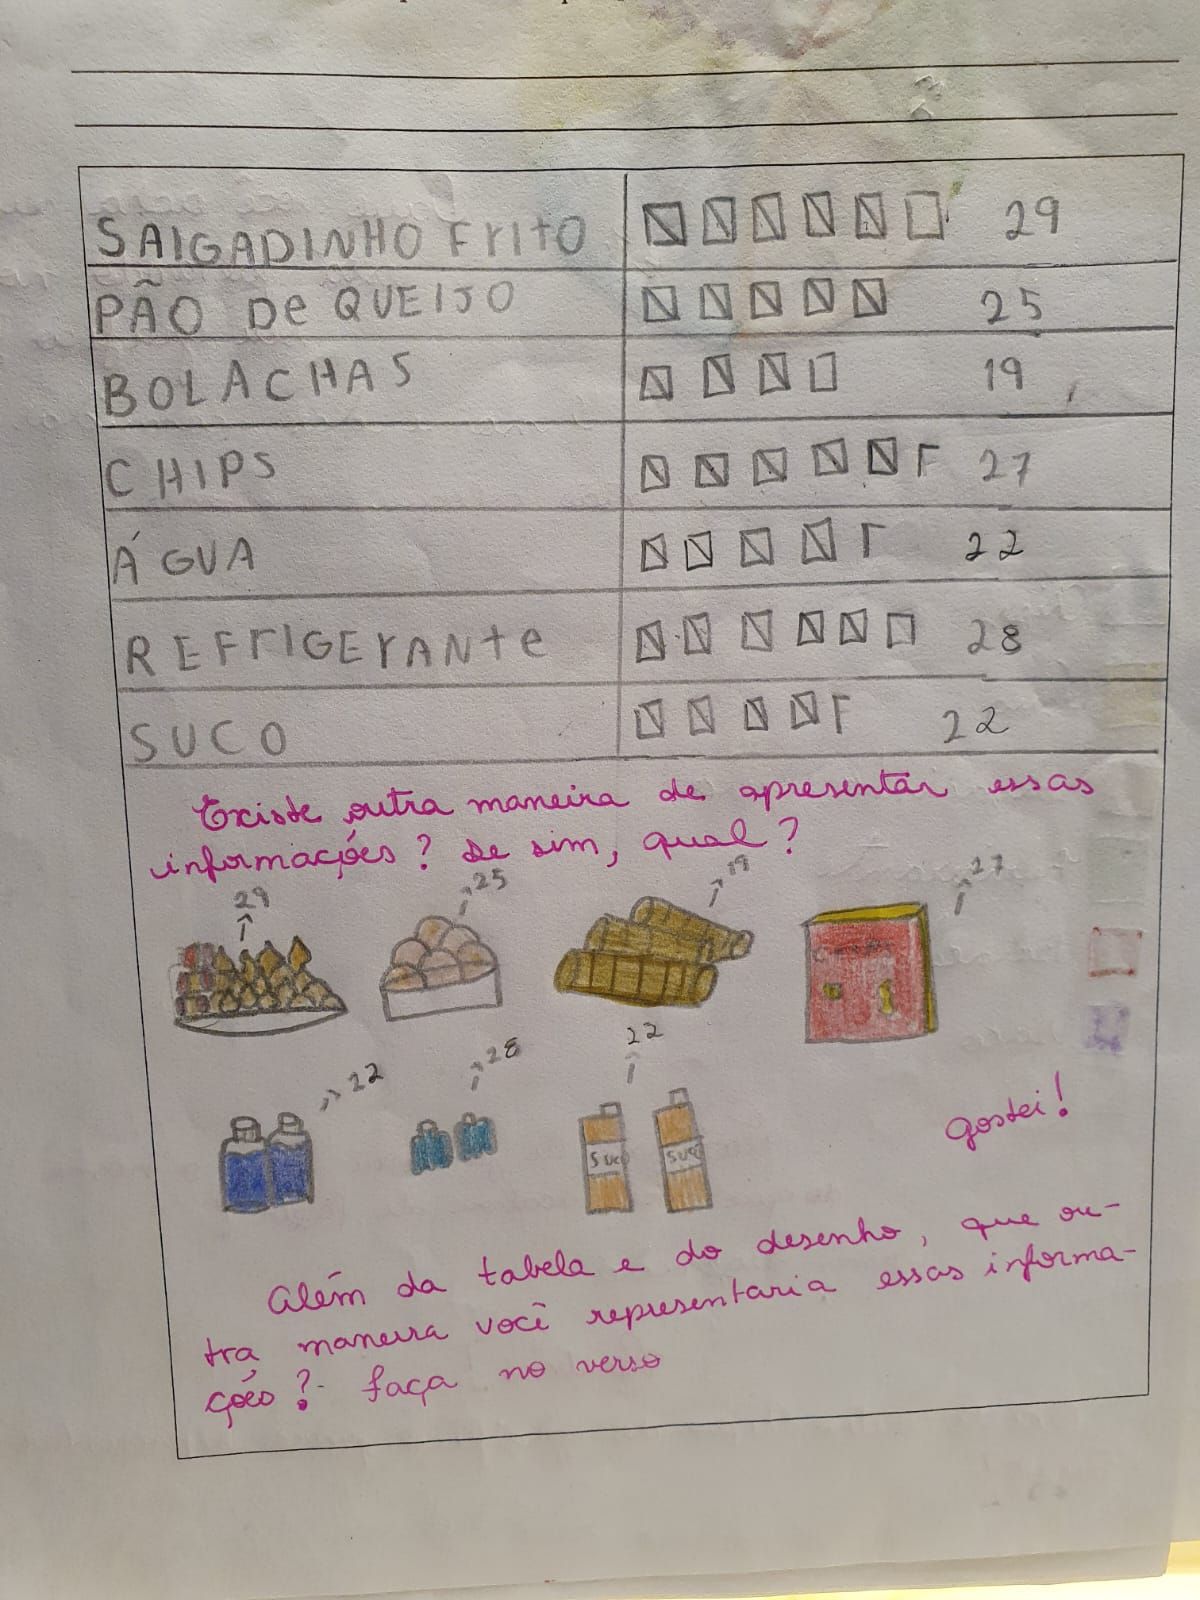 SAlGADINHO FrItO 29
PÃO De QUEIJO 25
BOLACHAS 19
CHIPS 27
ÁGUA 22
REFrIGErANte 28
SUCO 22
Existe outra maneira de apresentar essas
informações? Se sim, qual?
29 25 19 27
22 28 22
Suco Suco
gostei!
Além da tabela e do desenho, que ou-
tra maneira você representaria essas informa-
ções? Faça no verso